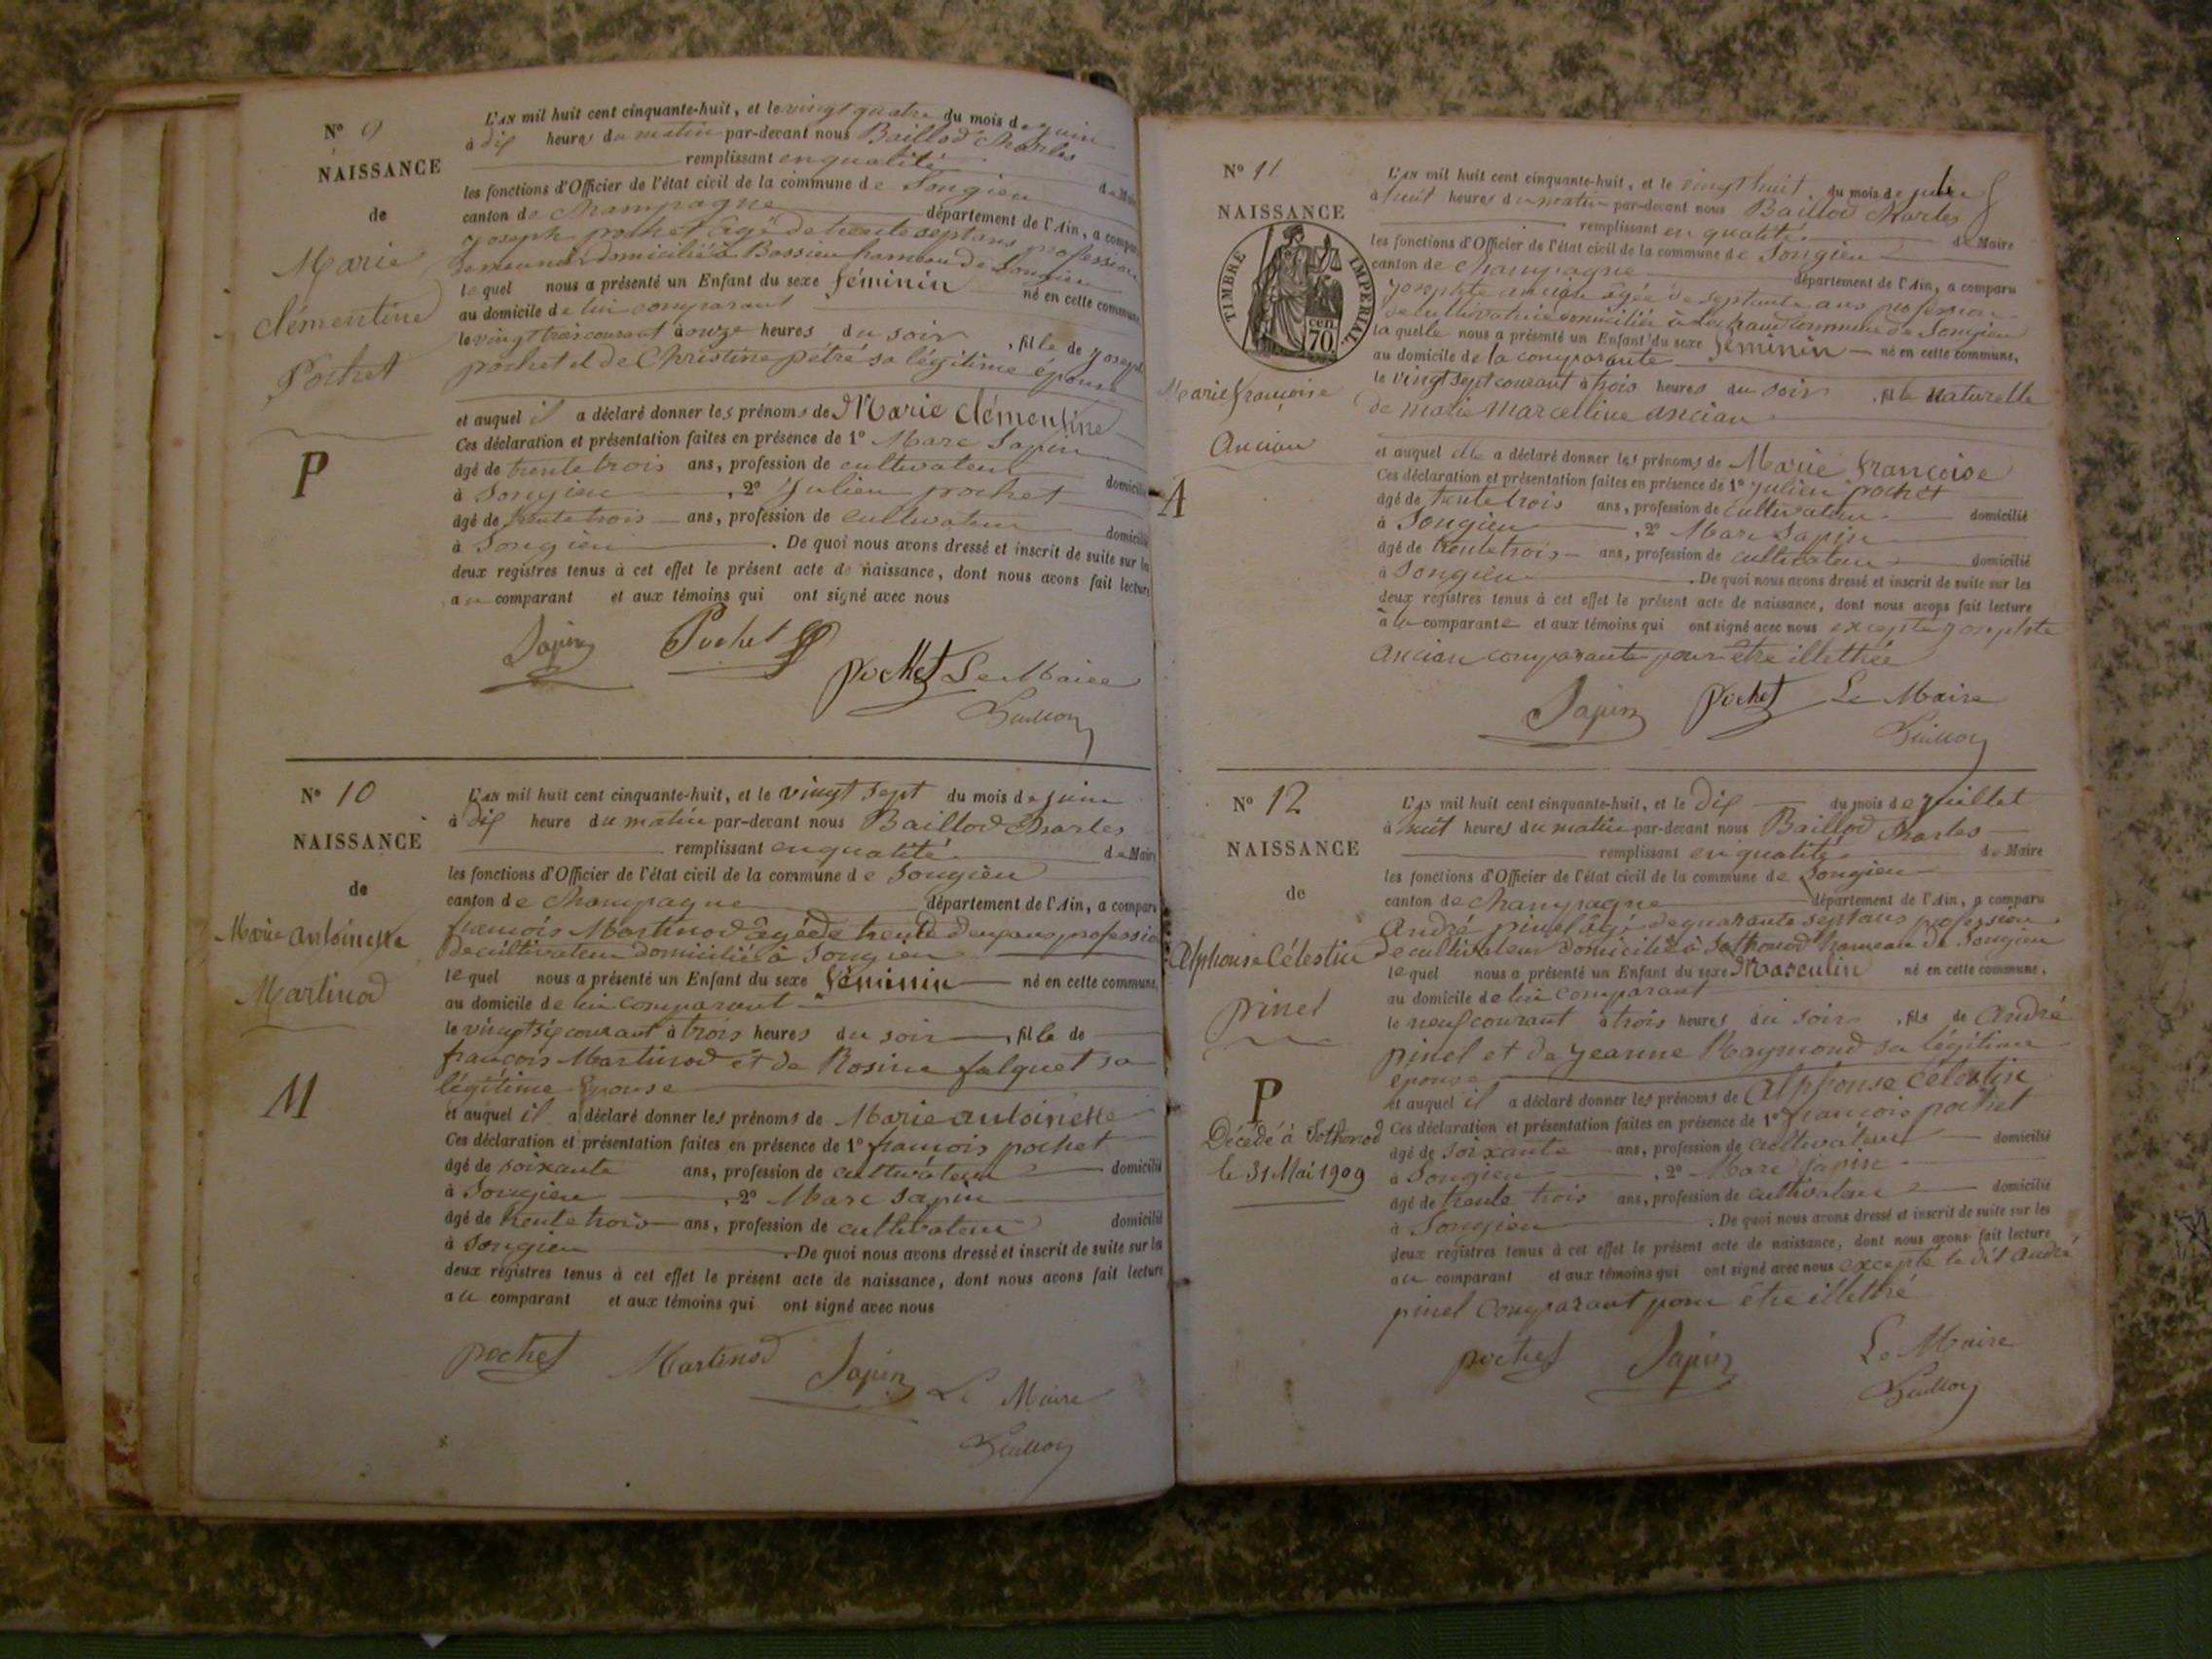 N° 9
NAISSANCE
de
Marie
Clémentine
Pochet
P
L'AN mil huit cent cinquante-huit, et le vingt quatre du mois de juin
à dix heures du matin par-devant nous Baillod Charles
remplissant en qualité de Maire
les fonctions d'Officier de l'état civil de la commune de Songieu
canton de Champagne département de l'Ain, a comparu
joseph pochet âgé de trente sept ans profession
de meunier domicilié à Bossieu hameau de Songieu
le quel nous a présenté un Enfant du sexe féminin né en cette commune,
au domicile de lui comparant
le vingt trois courant à onze heures du soir, fille de joseph
pochet et de Christine pétré sa légitime épouse
et auquel il a déclaré donner les prénoms de Marie Clémentine
Ces déclaration et présentation faites en présence de 1° Marc Sapin
âgé de trente trois ans, profession de cultivateur domicilié
à Songieu, 2° Julien pochet
âgé de trente trois ans, profession de cultivateur domicilié
à Songieu. De quoi nous avons dressé et inscrit de suite sur les
deux registres tenus à cet effet le présent acte de naissance, dont nous avons fait lecture
au comparant et aux témoins qui ont signé avec nous
Sapin Pochet
pochet Le Maire
N° 10
NAISSANCE
de
Marie antoinette
Martinod
M
L'AN mil huit cent cinquante-huit, et le vingt sept du mois de juin
à dix heure du matin par-devant nous Baillod Charles
remplissant en qualité de Maire
les fonctions d'Officier de l'état civil de la commune de Songieu
canton de Champagne département de l'Ain, a comparu
françois Martinod âgé de trente deux ans profession
de cultivateur domicilié à Songieu
le quel nous a présenté un Enfant du sexe féminin né en cette commune,
au domicile de lui comparant
le vingt six courant à trois heures du soir, fille de
françois Martinod et de Rosine falquet sa
légitime Epouse
et auquel il a déclaré donner les prénoms de Marie antoinette
Ces déclaration et présentation faites en présence de 1° françois pochet
âgé de soixante ans, profession de cultivateur domicilié
à Songieu, 2° Marc Sapin
âgé de trente trois ans, profession de cultivateur domicilié
à Songieu. De quoi nous avons dressé et inscrit de suite sur les
deux registres tenus à cet effet le présent acte de naissance, dont nous avons fait lecture
au comparant et aux témoins qui ont signé avec nous
pochet Martinod Sapin Le Maire
N° 11
NAISSANCE
TIMBRE IMPERIAL
70 cen.
Marie françoise
Ancian
A
L'AN mil huit cent cinquante-huit, et le vingt huit du mois de
à huit heures du matin par-devant nous Baillod Charles
remplissant en qualité de Maire
les fonctions d'Officier de l'état civil de la commune de Songieu
canton de Champagne département de l'Ain, a comparu
josephte ancian âgée de septante ans profession
de cultivatrice domiciliée à commune de Songieu
la quelle nous a présenté un Enfant du sexe féminin né en cette commune,
au domicile de la comparante
le vingt sept courant à trois heures du soir, fille naturelle
de marie marcelline ancian
et auquel elle a déclaré donner les prénoms de Marie françoise
Ces déclaration et présentation faites en présence de 1° julien pochet
âgé de trente trois ans, profession de cultivateur domicilié
à Songieu, 2° Marc Sapin
âgé de trente trois ans, profession de cultivateur domicilié
à Songieu. De quoi nous avons dressé et inscrit de suite sur les
deux registres tenus à cet effet le présent acte de naissance, dont nous avons fait lecture
à la comparante et aux témoins qui ont signé avec nous excepté josephte
ancian comparante pour être illettrée
Sapin pochet Le Maire
N° 12
NAISSANCE
de
Alphonse Célestin
pinel
P
Décédé à Sothonod
le 31 Mai 1909
L'AN mil huit cent cinquante-huit, et le dix du mois de juillet
à huit heures du matin par-devant nous Baillod Charles
remplissant en qualité de Maire
les fonctions d'Officier de l'état civil de la commune de Songieu
canton de Champagne département de l'Ain, a comparu
André pinel âgé de quarante sept ans profession
de cultivateur domicilié à Sothonod hameau de Songieu
le quel nous a présenté un Enfant du sexe Masculin né en cette commune,
au domicile de lui comparant
le neuf courant à trois heures du soir, fils de André
pinel et de jeanne Raymond sa légitime
épouse
et auquel il a déclaré donner les prénoms de Alphonse Célestin
Ces déclaration et présentation faites en présence de 1° françois pochet
âgé de soixante ans, profession de cultivateur domicilié
à Songieu, 2° Marc sapin
âgé de trente trois ans, profession de cultivateur domicilié
à Songieu. De quoi nous avons dressé et inscrit de suite sur les
deux registres tenus à cet effet le présent acte de naissance, dont nous avons fait lecture
au comparant et aux témoins qui ont signé avec nous excepté le dit André
pinel comparant pour être illettré
pochet Sapin Le Maire